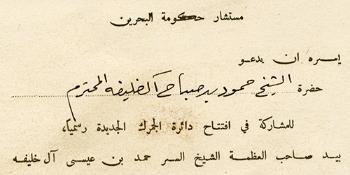 مستشار حكومة البحرين
يسره ان يدعو
حضرة الشيخ حمود بن صباح آل خليفه المحترم
للمشاركة في افتتاح دائرة الجمرك الجديدة رسمياً،
بيد صاحب العظمة الشيخ السر حمد بن عيسى آل خليفه